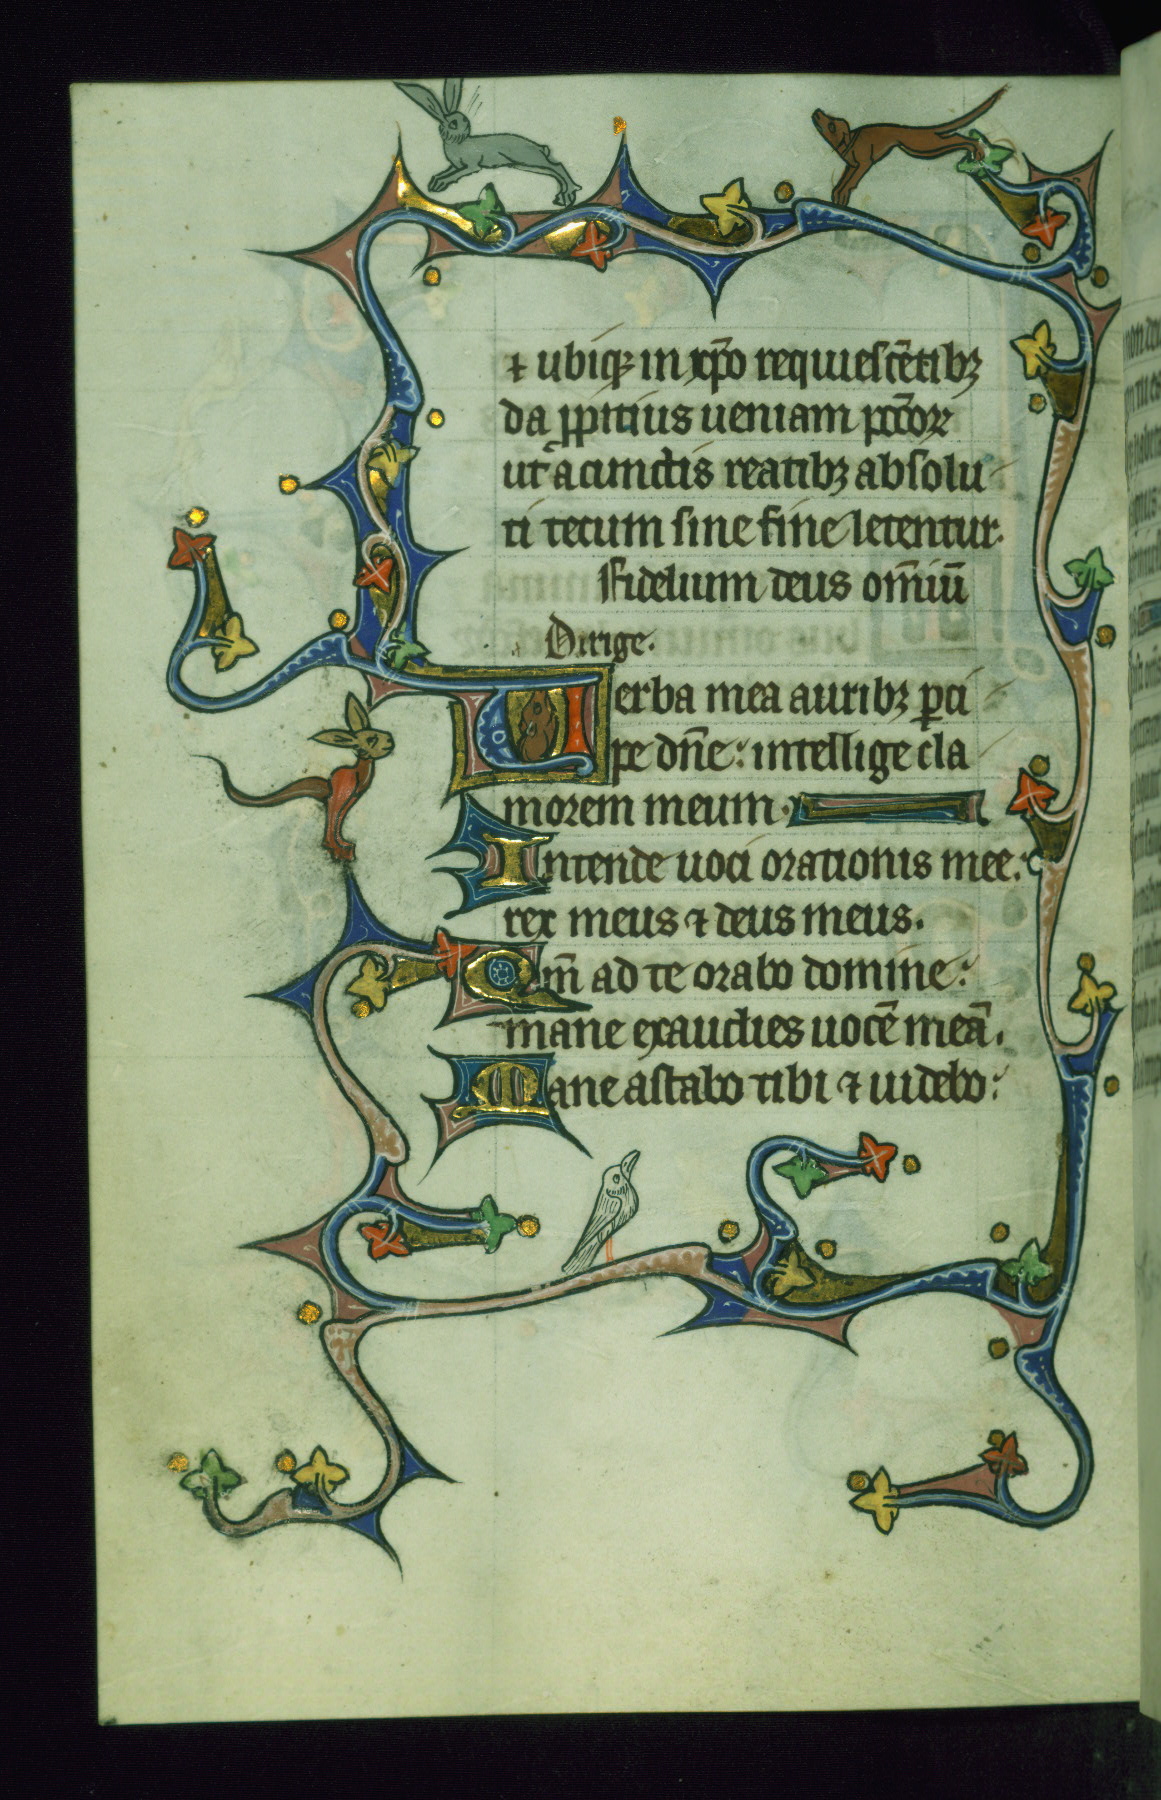 ⁊ ubiqꝫ in xp̄o requiescētibꝫ
da ꝓpitius ueniam pcc̄oꝝ
ut a cunctis reatibꝫ absolu
ti tecum sine fine letentur.
Fidelium deus om̄iū
Dirige.
Uerba mea auribꝫ ꝑci
pe dn̄e: intellige cla
morem meum.
Intende uoci orationis mee:
rex meus ⁊ deus meus.
Qm̄ ad te orabo domine:
mane exaudies uocē meā.
Mane astabo tibi ⁊ uidebo: